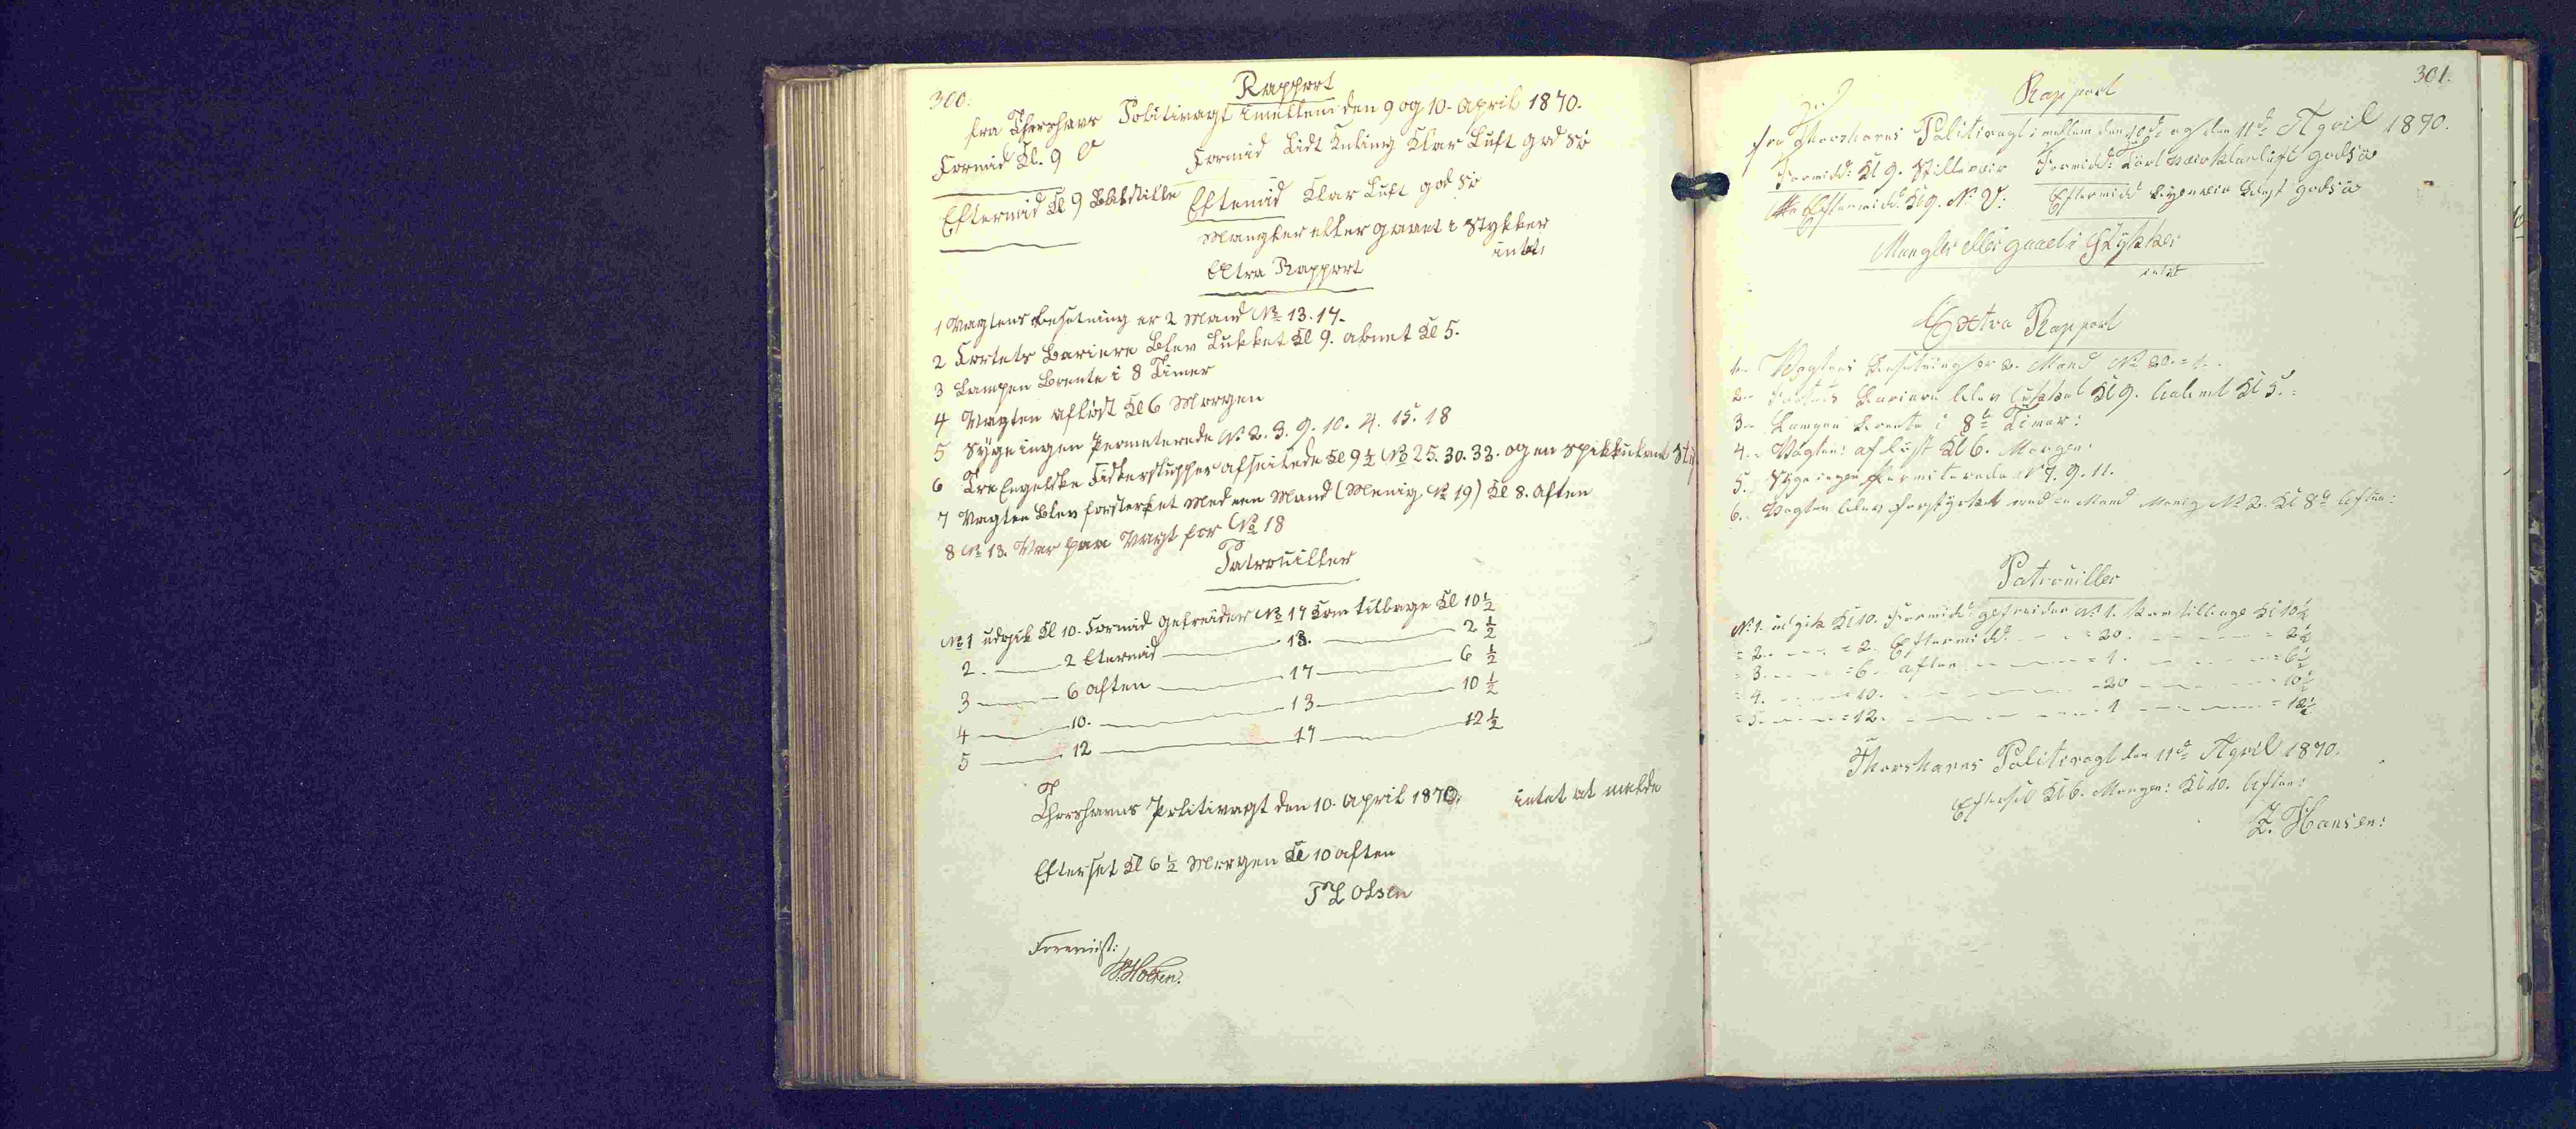 300.
Rapport
fra Thorshavns Politivagt imellem den 9 og 10. April 1870.
Formid Kl. 9 O
Formid Lidt Kuling Klar Luft god Sø
Eftermid Kl 9 Blikstille
Eftemid Klar Luft god Sø
Mangler eller gaaet i Stykker
intet,
Extra Rapport
1 Vagtens Besetning er 2 Mand № 13. 17.
2 Fortets Bariere Blev Lukket Kl 9. abnet Kl 5.
3 Lampen Brente i 8 Timer
4 Vagten afløst Kl 6 Morgen
5 Syge ingen Permiterede № 2. 3. 9. 10. 4. 15. 18
6 Tre Engelske Fiskerslupper afseilede Kl 9 ½ № 25. 30. 33. og en
7 Vagten Blev forsterket Med een Mand (Menig. № 19) Kl 8. Aften
8 № 13. Var paa Vagt for № 18
Patrouiller
№ 1 udgik Kl 10. Formid Gefreider № 17 Kom tilbage Kl 10 ½
2. 2 Etermid 13. 2 ½
3 6 aften 17 6 ½
4 10. 13 10 ½
5 12 17 12 ½
Thorshavns Politivagt den 10. April 1870. intet at melde
Efterset Kl 6 ½ Morgen Kl 10 aften
Olsen
Foreviist:
301.
Rapport
fra Thorshavns Politivagt imellem den 10de og den 11de April 1870.
Formidd: Kl 9. Stilleveir Formidd: Klarluft godsø
Eftermidd: Kl 9. N. V: Eftermidd godsø
Mangler eller gaaet i Stykker
intet
Extra Rapport
1. Vagtens Besetning er 2. Mand № 20. = 1.
2. Fortets Bariere blev lukket Kl 9. aabnet Kl 5.
3. Lampen Brente i 8te Timer:
4. Vagten: afløst Kl 6. Morgen.
5. Syge ingen Permiterede № 7. 9. 11.
6. Vagten blev forstyrket med en Mand Menig № 2. Kl 8te Aften:
Patrouiller
№ 1. udgik Kl 10. Formidd: gefreider № 1. Kom tilbage Kl 10½
= 2. = 2. Eftermidd. = 20. = 2½
= 3. = 6. aften = 1. = 6½
= 4. = 10. = 20 = 10½
= 5. = 12. 1 = 12½
Thorshavns Politivagt den 11te April 1870.
Efterset Kl 6. Morgen: Kl 10. Aften:
Z. Hansen: